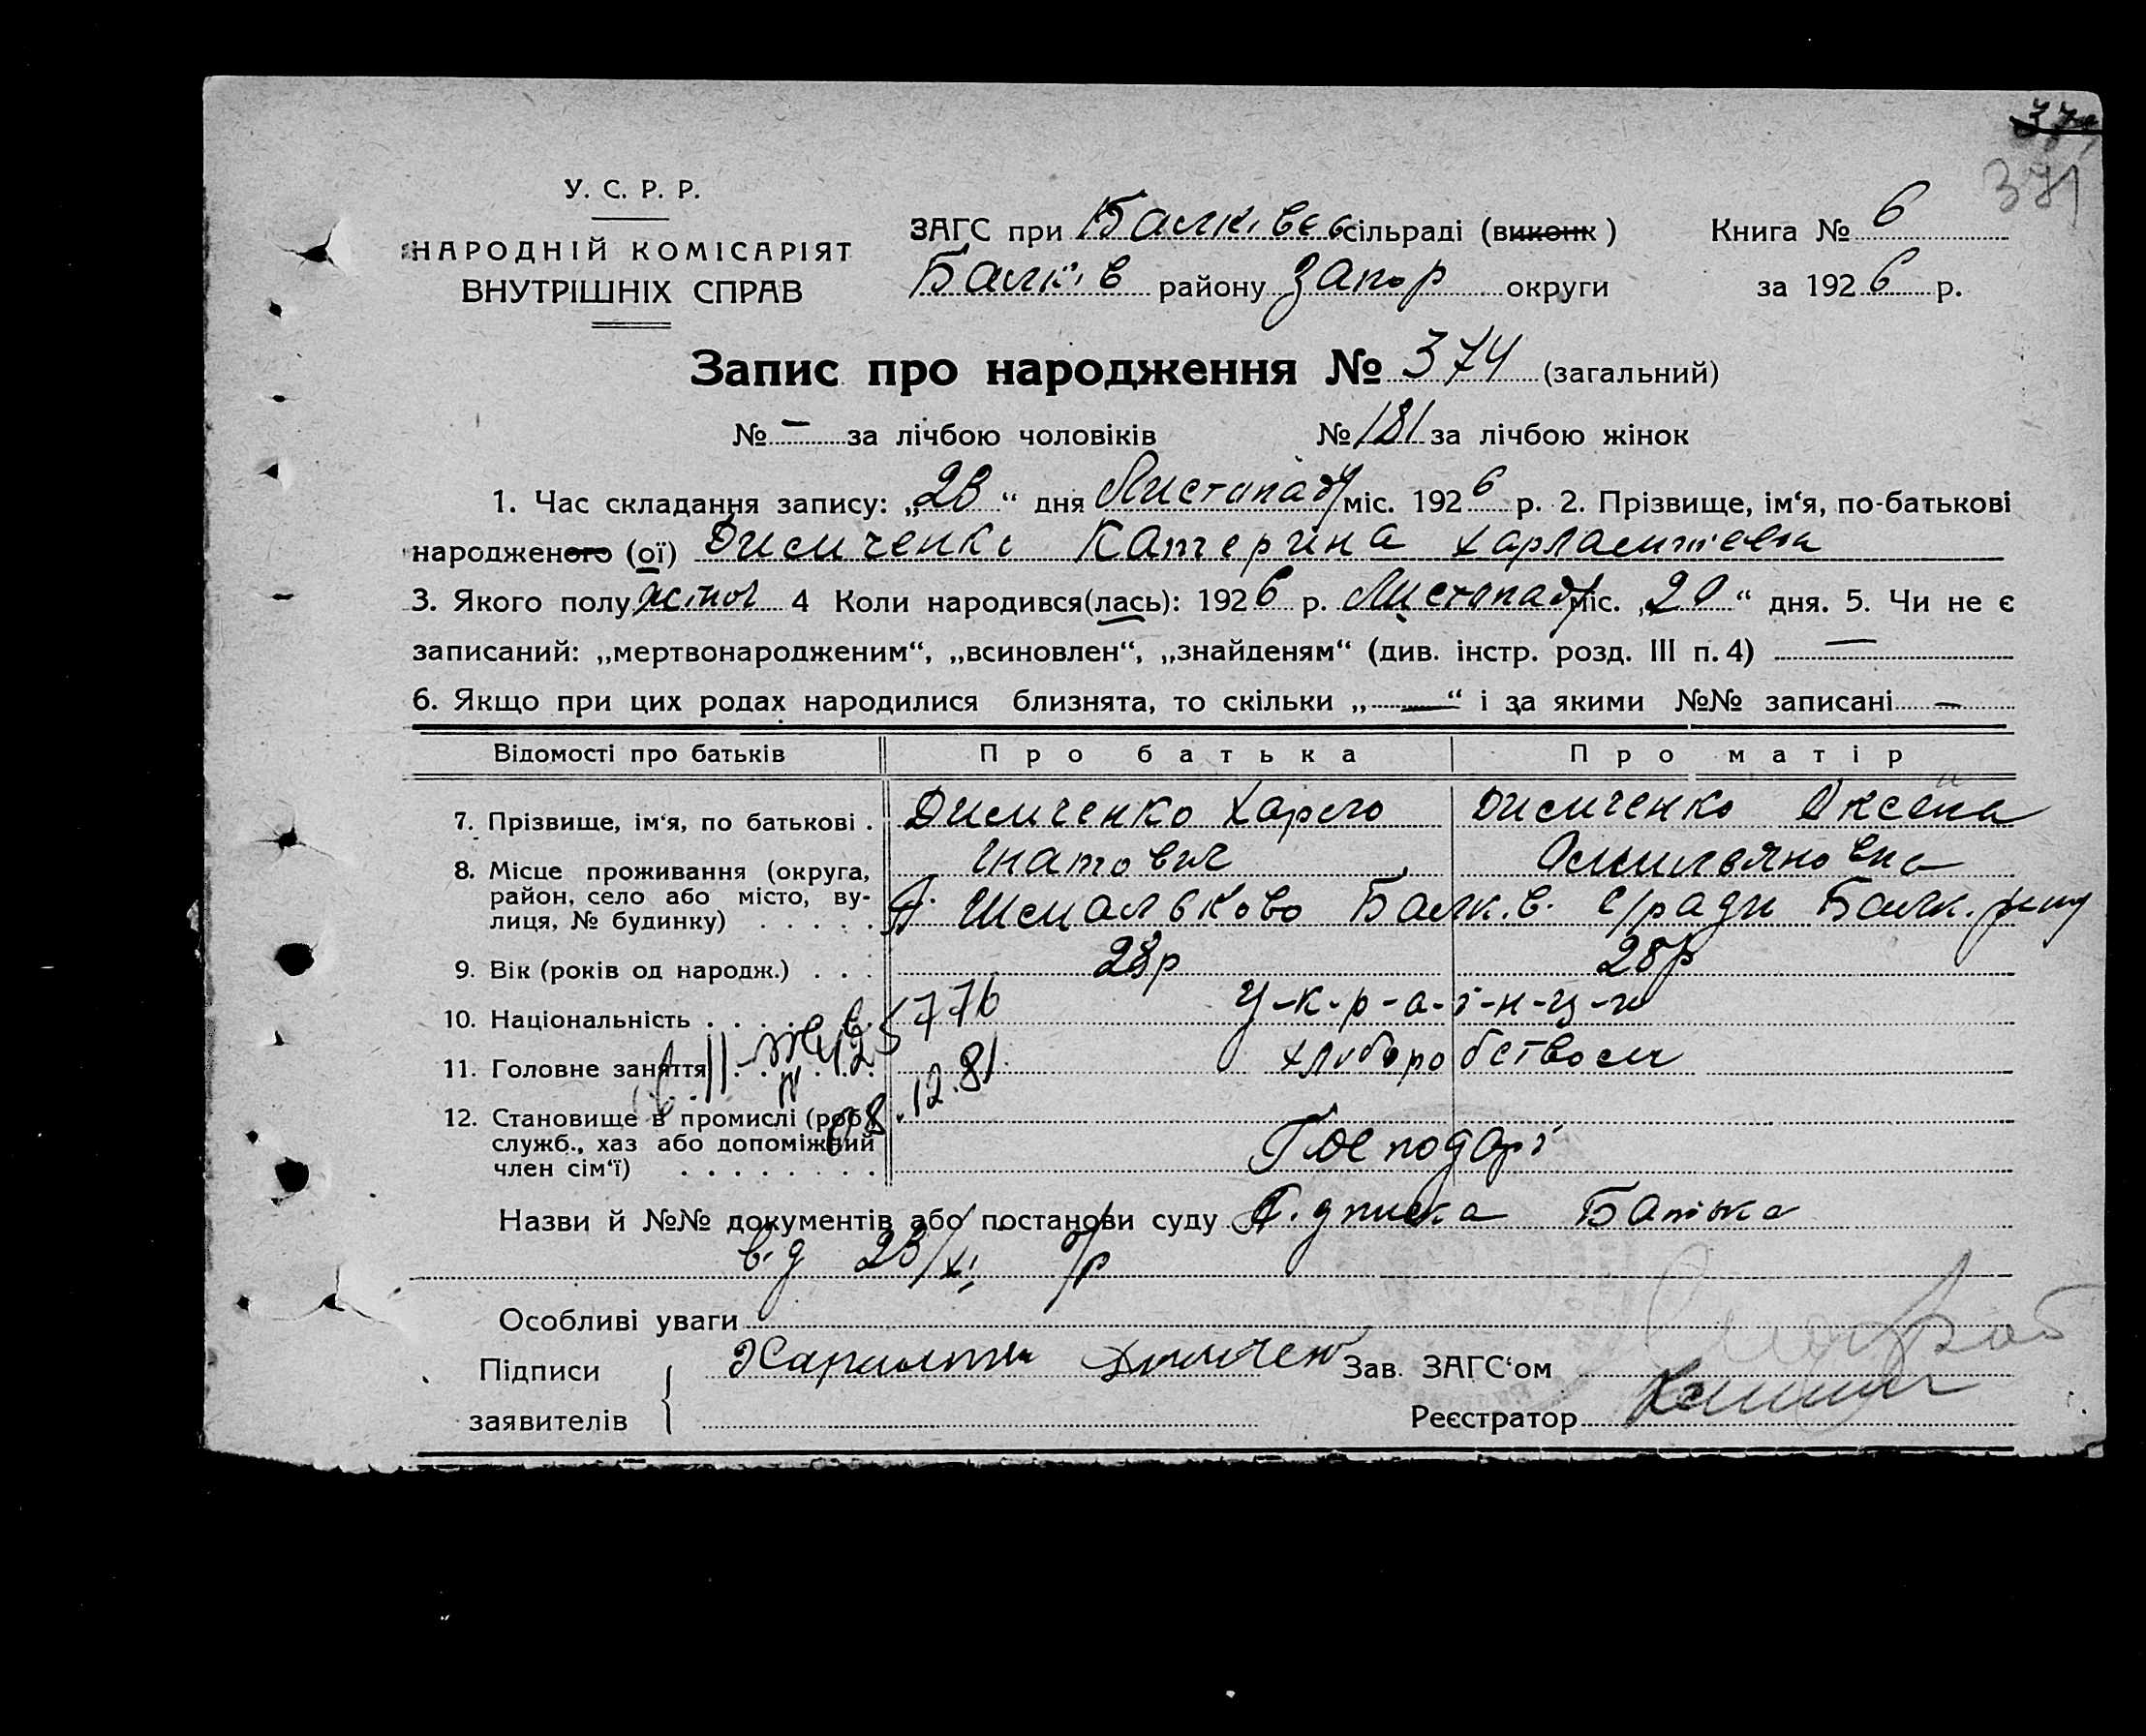 371
У. С. Р. Р.
НАРОДНІЙ КОМІСАРІЯТ
ВНУТРІШНІХ СПРАВ
ЗАГС при Балківсь сільраді (виконк ) Книга № 6
Балків району Запор округи за 1926 р.
Запис про народження № 374 (загальний)
№ — за лічбою чоловіків № 181 за лічбою жінок
1. Час складання запису: „23“ дня Листопаду міс. 1926 р. 2. Прізвище, ім‘я, по-батькові
народженого (ої) Димченко Катерина
3. Якого полу жіноч 4 Коли народився(лась): 1926 р. Листопаду міс. „20“ дня. 5. Чи не є
записаний: „мертвонародженим“, „всиновлен“, „знайденям“ (див. інстр. розд. III п. 4) —
6. Якщо при цих родах народилися близнята, то скільки „—“ і за якими №№ записані —
Відомості про батьків Про батька Про матір
7. Прізвище, ім‘я, по батькові . Димченко Димченко Оксена
Гнатович Омильяновна
8. Місце проживання (округа,
район, село або місто, ву-
лиця, № будинку) . . . . . Балк.в. с/ради Балк.
9. Вік (років од народж.) . . . 28р 28р
10. Національність . . . . У-к-р-а-ї-н-ц-и
11. Головне заняття . . . . хлиборобством
12.81.
12. Становище в промислі (роб.,
служб., хаз або допоміжний
член сім‘ї) . . . . . . . . Господарі
Назви й №№ документів або постанови суду Підписка Батька
від 23/XI
Особливі уваги
Підписи
заявителів
Зав. ЗАГС‘ом
Реєстратор